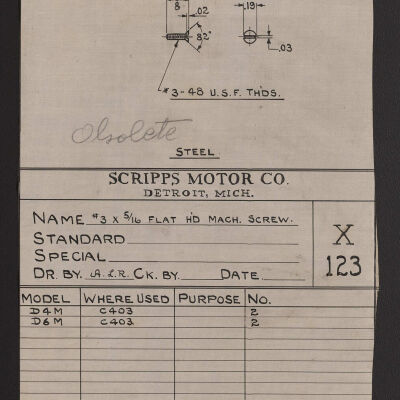 8 .02 .19
82°
.03
#3-48 U.S.F. TH'DS.
Obsolete
STEEL
SCRIPPS MOTOR CO.
DETROIT, MICH.
NAME #3 X 5/16 FLAT H'D MACH. SCREW.
STANDARD
SPECIAL
X
123
DR. BY. A.L.R. CK. BY. DATE
MODEL WHERE USED PURPOSE NO.
D4M C403 2
D6M C403 2